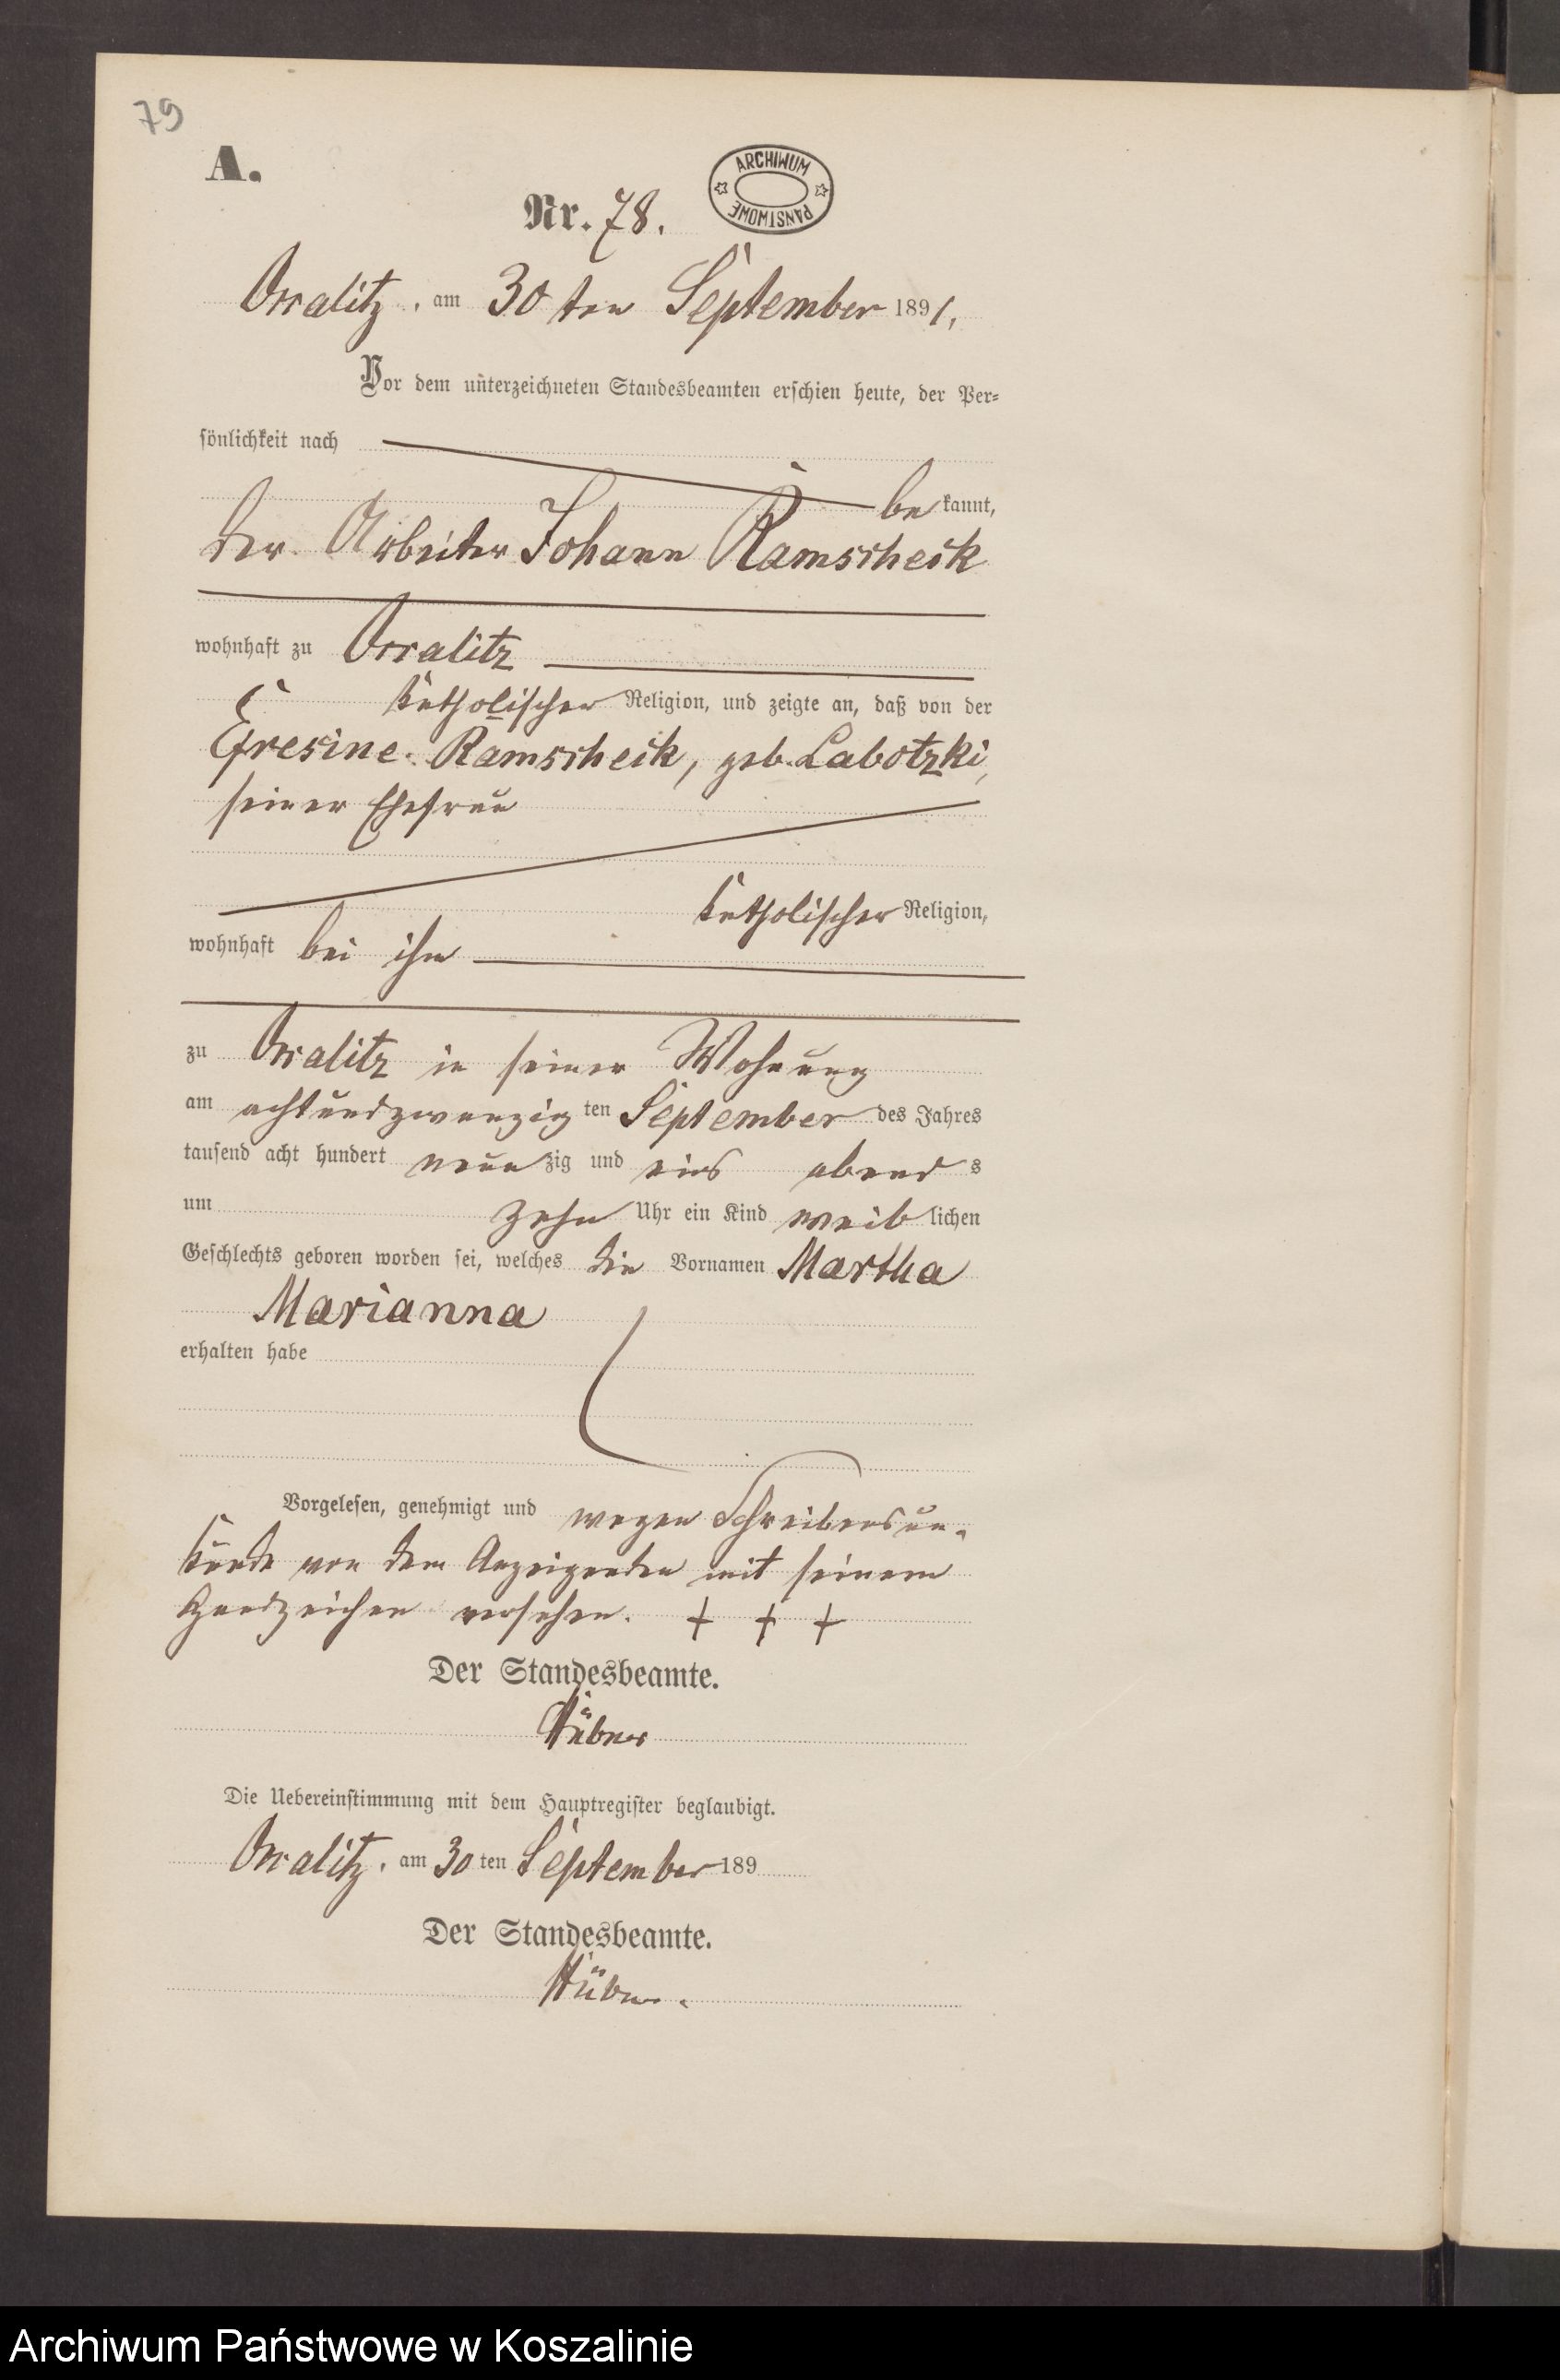 79
A.
ARCHIWUM PAŃSTWOWE
Nr. 78.
Vrialitz, am 30 ten September 1891.
Vor dem unterzeichneten Standesbeamten erschien heute, der Per-
sönlichkeit nach
be kannt,
der Arbeiter Johann Ramscheik
wohnhaft zu
katholischer Religion, und zeigte an, daß von der
Efresine Ramscheik, geb. Labotzki,
seiner Ehefrau
katholischer Religion,
wohnhaft bei ihm
zu in seiner Wohnung
am achtundzwanzig ten September des Jahres
tausend acht hundert neun zig und eins abend s
um zehn Uhr ein Kind weib lichen
Geschlechts geboren worden sei, welches die Vornamen Martha
Marianna
erhalten habe
Vorgelesen, genehmigt und wegen Schreibensun-
kunde von dem Anzeigenden mit seinem
Handzeichen versehen. + + +
Der Standesbeamte.
Die Uebereinstimmung mit dem Hauptregister beglaubigt.
am 30 ten September 189
Der Standesbeamte.
Archiwum Państwowe w Koszalinie